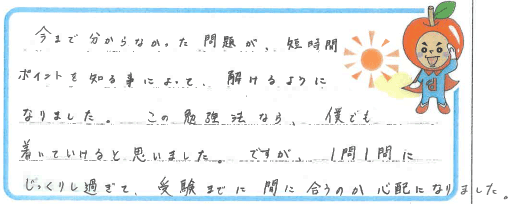 今まで分からなかった問題が、短時間
ポイントを知る事によって、解けるように
なりました。この勉強法なら、僕でも
着いていけると思いました。ですが、1問1問に
じっくりし過ぎて、受験までに間に合うのか心配になりました。